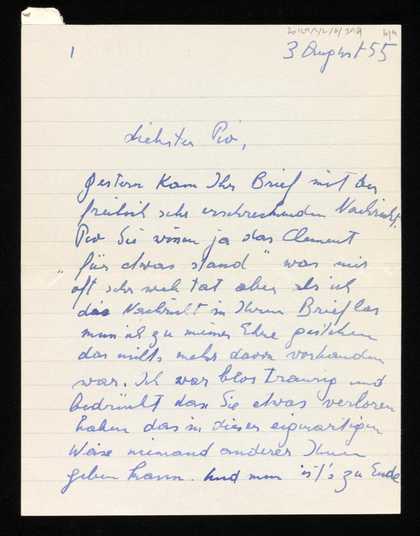 1
3 August 55
Liebster Pio,
gestern kam Ihr Brief mit der
freilich sehr erschreckenden Nachricht.
Pio Sie wissen ja das Clement
"für etwas stand" was mir
oft sehr weh tat aber als ich
die Nachricht in Ihrem Brief las
muss ich zu meiner Ehre gestehen
das nichts mehr davon vorhanden
war. Ich war blos traurig und
bedrückt das Sie etwas verloren
haben das in dieser eigenartigen
Weise niemand anderer Ihnen
geben kann. Und nun ist's zu Ende